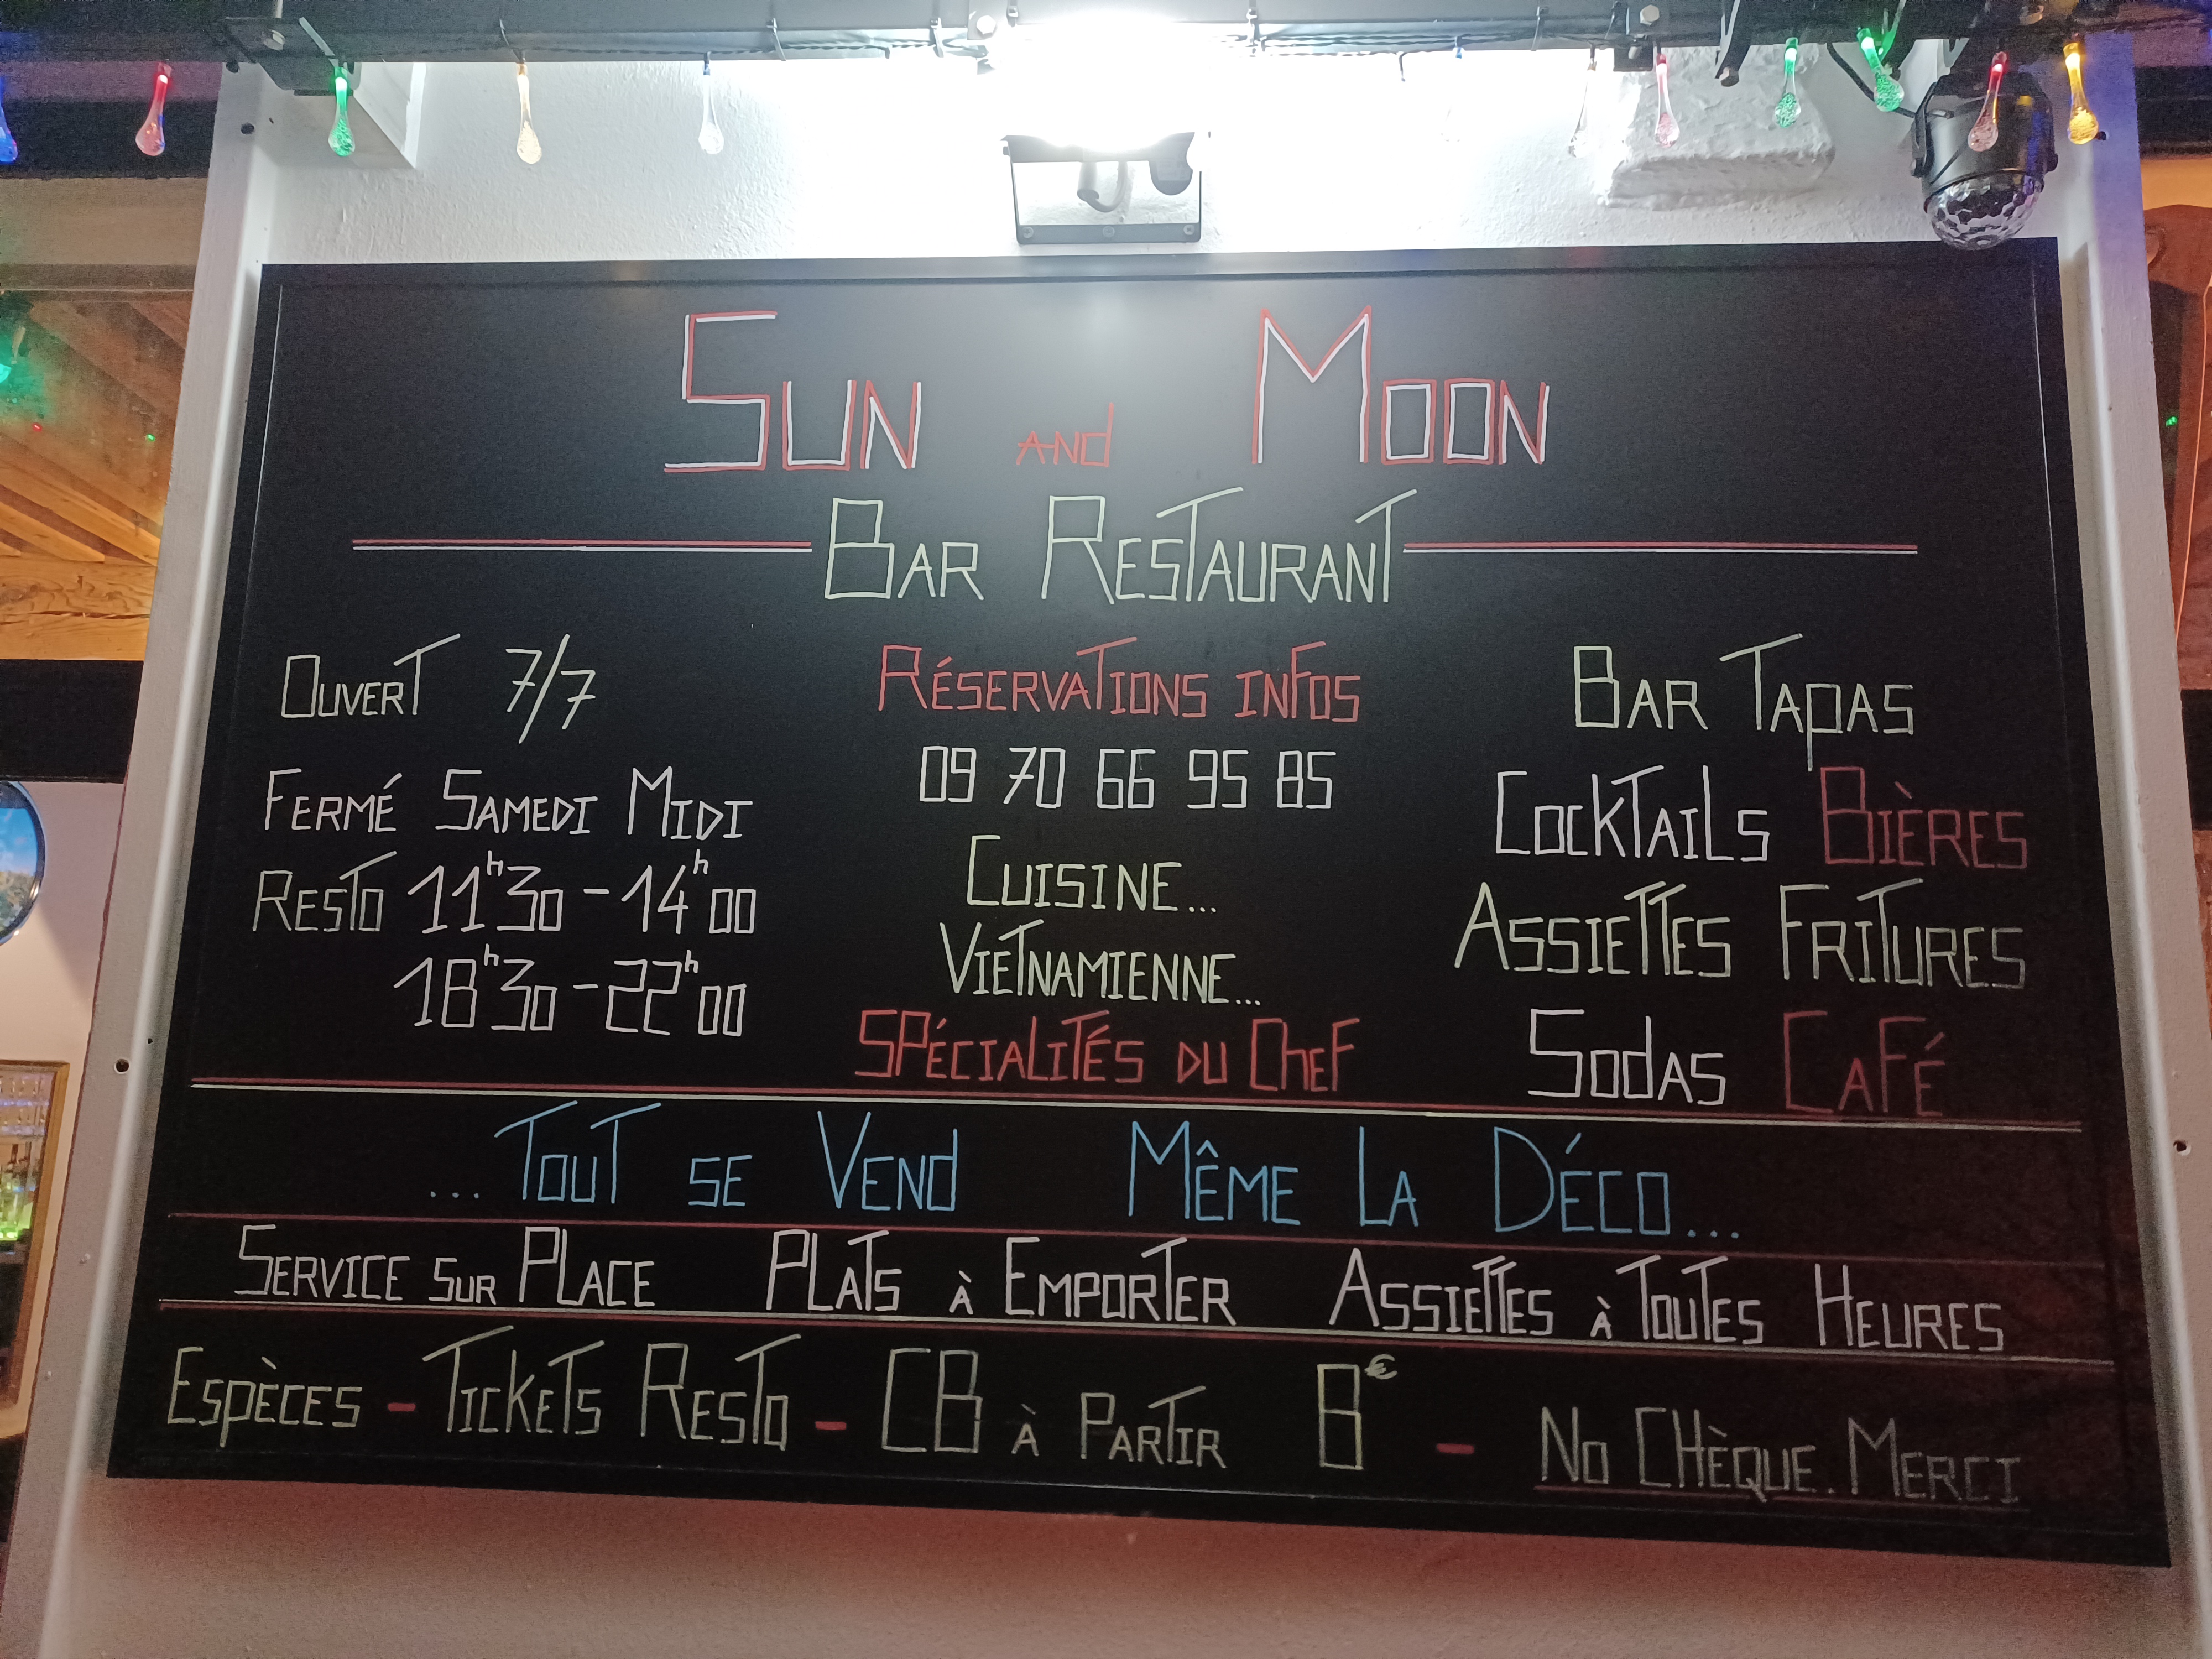 Sun and Moon
Bar Restaurant
Ouvert 7/7
Fermé Samedi Midi
Resto 11h30 - 14h00
18h30 - 22h00
Réservations infos
09 70 66 95 85
Cuisine...
Vietnamienne...
Spécialités du Chef
Bar Tapas
Cocktails Bières
Assiettes Fritures
Sodas Café
...Tout se Vend Même La Déco...
Service sur Place Plats à Emporter Assiettes à Toutes Heures
Espèces - Tickets Resto - CB à Partir 8€ - No Chèque. Merci